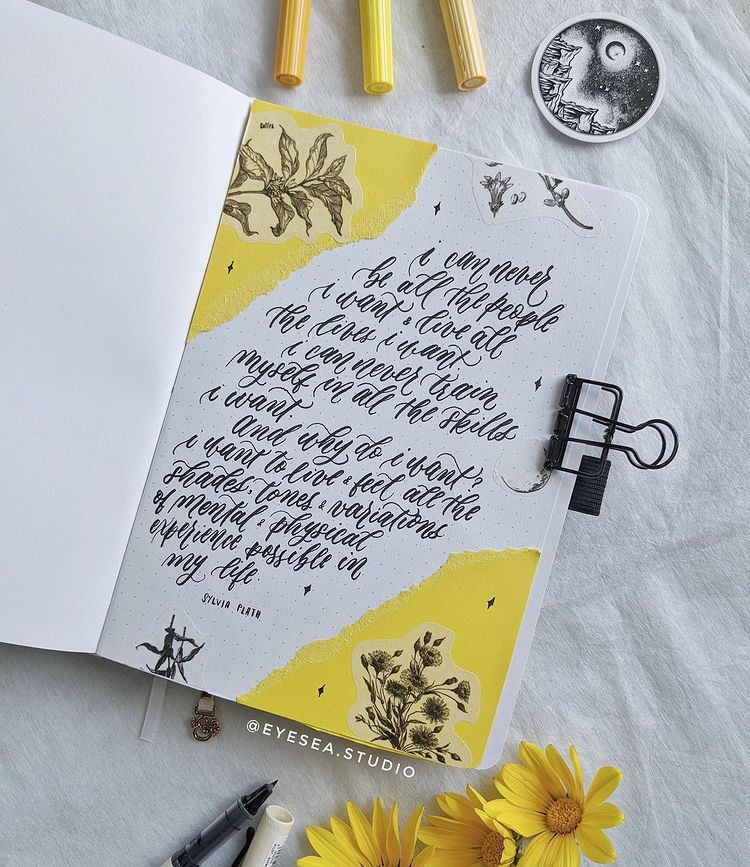 Coffea
i can never
be all the people
i want & live all
the lives i want.
i can never train
myself in all the skills
i want.
And why do i want?
i want to live & feel all the
shades, tones & variations
of mental & physical
experience possible in
my life.
SYLVIA PLATH
@EYESEA.STUDIO